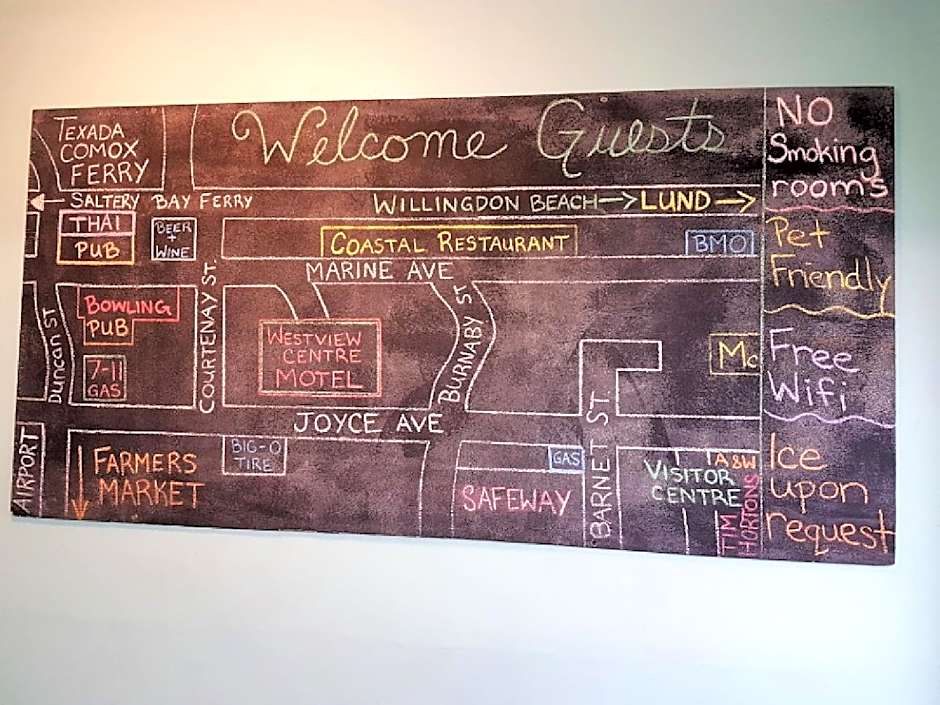 Welcome Guests
TEXADA
COMOX
FERRY
← SALTERY BAY FERRY
WILLINGDON BEACH → LUND →
THAI
PUB
BEER
+
WINE
COASTAL RESTAURANT
BMO
MARINE AVE
DUNCAN ST
BOWLING
PUB
7-11
GAS
COURTENAY ST.
WESTVIEW
CENTRE
MOTEL
BURNABY ST
Mc
JOYCE AVE
AIRPORT
FARMERS
MARKET
BIG-O
TIRE
SAFEWAY
GAS
BARNET ST.
A&W
VISITOR
CENTRE
TIM
HORTONS
NO
Smoking
rooms
Pet
Friendly
Free
Wifi
Ice
upon
request